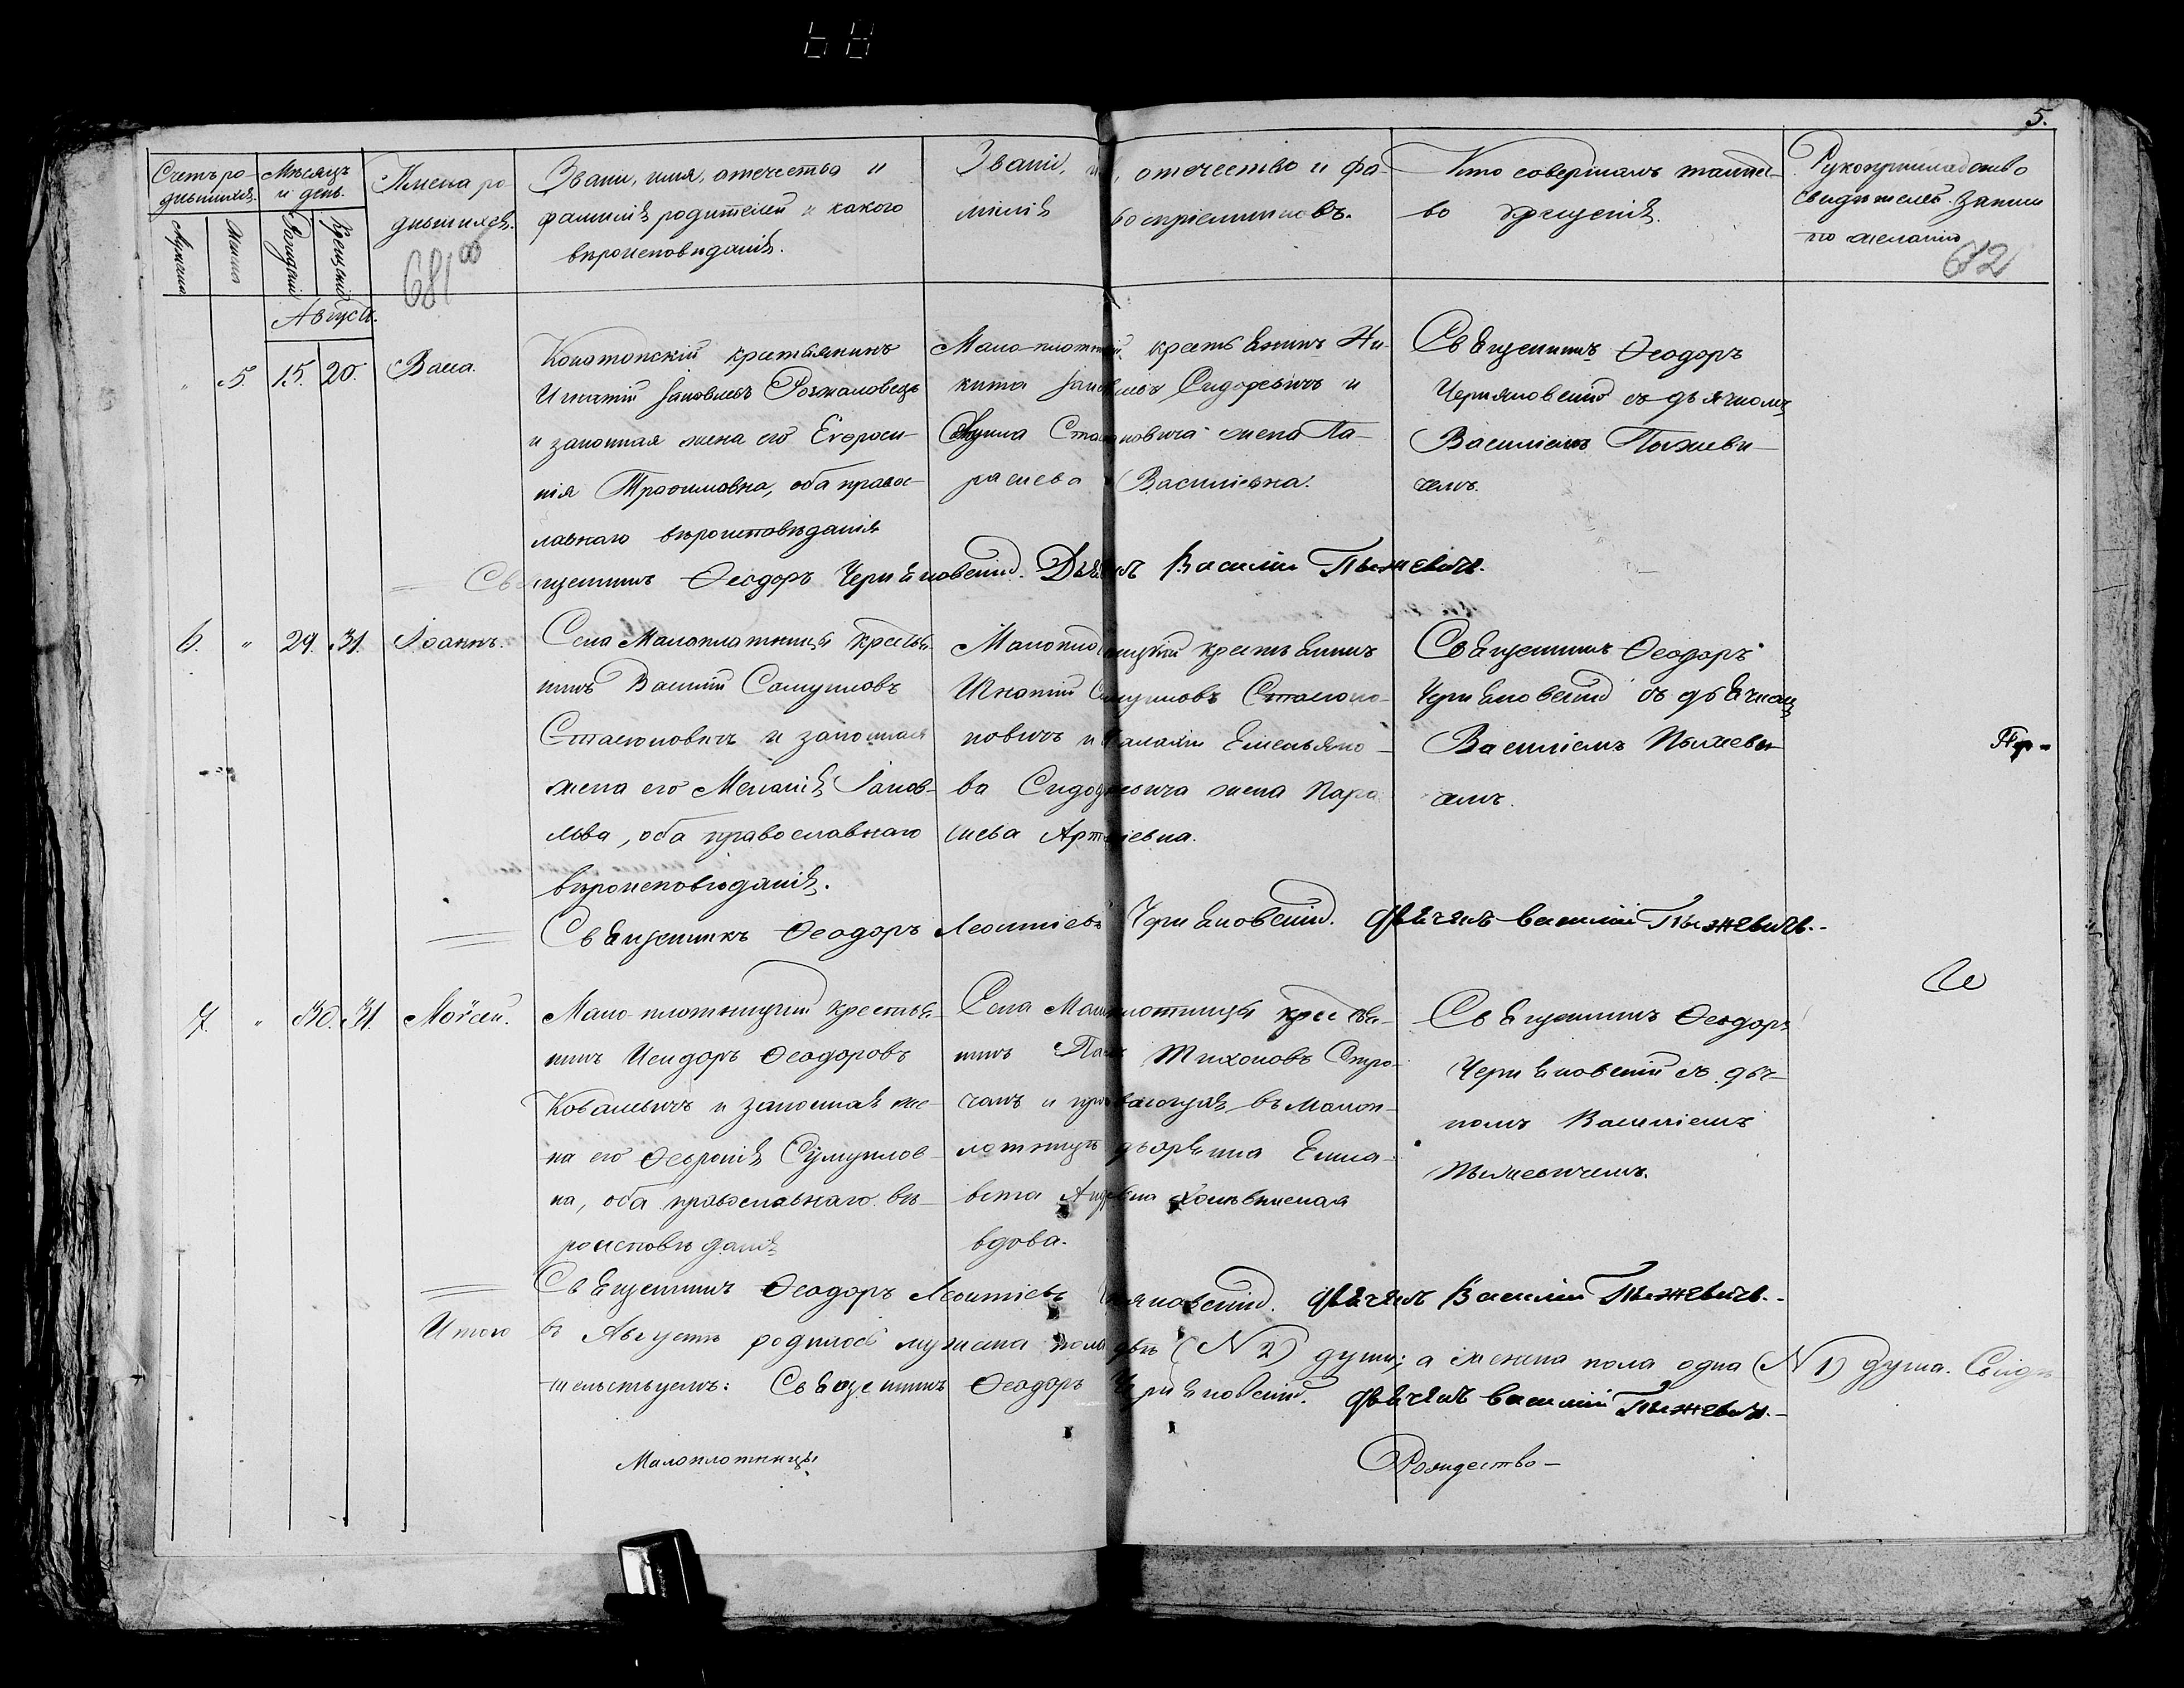 68
5.
Счетъ ро-
дившихся.
Мужеска
Женска
Мѣсяцъ
и день.
Рожденія
Крещенія
Имена ро-
дившихся.
681об
Званіе, имя, отечество и
фамилія родителей и какого
вѣроисповѣданія.
Званіе, и, отечество и фа-
милія воспріемниковъ.
Кто совершалъ таинст-
во крещенія.
Рукоприкладство
свидѣтелей записи
по желанію
682
Августъ.
" 5. 15. 20. Васса.
Копотопскій крестьянинъ
Игнатій Іаковлевъ Рожаловецъ
и законная жена его Евфроси-
нія Трофимовна, оба правос-
лавнаго вѣроисповѣданія
Мало-плотницкій крестьянинъ Ни-
кита Іаковлевъ Сидоревичъ и
Стасюковича жена Па-
раскева Васильевна.
Священникъ Ѳеодоръ
Черняковскій съ дьячкомъ
Василіемъ Пыжеви-
чемъ.
Священникъ Ѳеодоръ Черняковскій. Дьячекъ Василій Пыжевичъ.
6. " 29. 31. Іоаннъ.
Села Малоплотницы крестья-
нинъ Василій Самуиловъ
Стасюковичъ и законная
жена его Меланія Іаков-
лева, оба православнаго
вѣроисповѣданія.
Малоплотницкій крестьянинъ
Игнатій Самуиловъ Стасюко-
ковичъ и Емельяно-
ва Сидоревича жена Пара-
скева Артміевна.
Священникъ Ѳеодоръ
Черняковскій съ дьячком
Василіемъ Пыжеви-
чемъ.
Священникъ Ѳеодоръ Леонтіевъ Черняковскій. Дьячекъ Василій Пыжевичъ.
7. " 30. 31. Моѵсей.
Мало-плотницкій крестья-
нинъ Исидоръ Ѳеодоровъ
Ковалевичъ и законная же-
на его Ѳевронія Самуилов-
на, оба православнаго вѣ-
роисповѣданія
Села Малоплотницы крестья-
нинъ Тихоновъ Стро-
чанъ и проживающая въ Малоп-
лотницѣ дворянка Елиса-
вета Андревна
вдова.
Священникъ Ѳеодоръ
Черняковскій съ дьяч-
комъ Василіемъ
Пыжевичемъ.
Священникъ Ѳеодоръ Леонтіевъ Черняковскій. Дьячекъ Василій Пыжевичъ.
Итого въ Августѣ родилось мужеска пола двѣ (N 2) души; а женска пола одна (N 1) душа. Свидѣ-
тельствуемъ: Священникъ Ѳеодоръ Черняковскій. Дьячекъ Василій Пыжевичъ.
Малоплотницы
Рождество